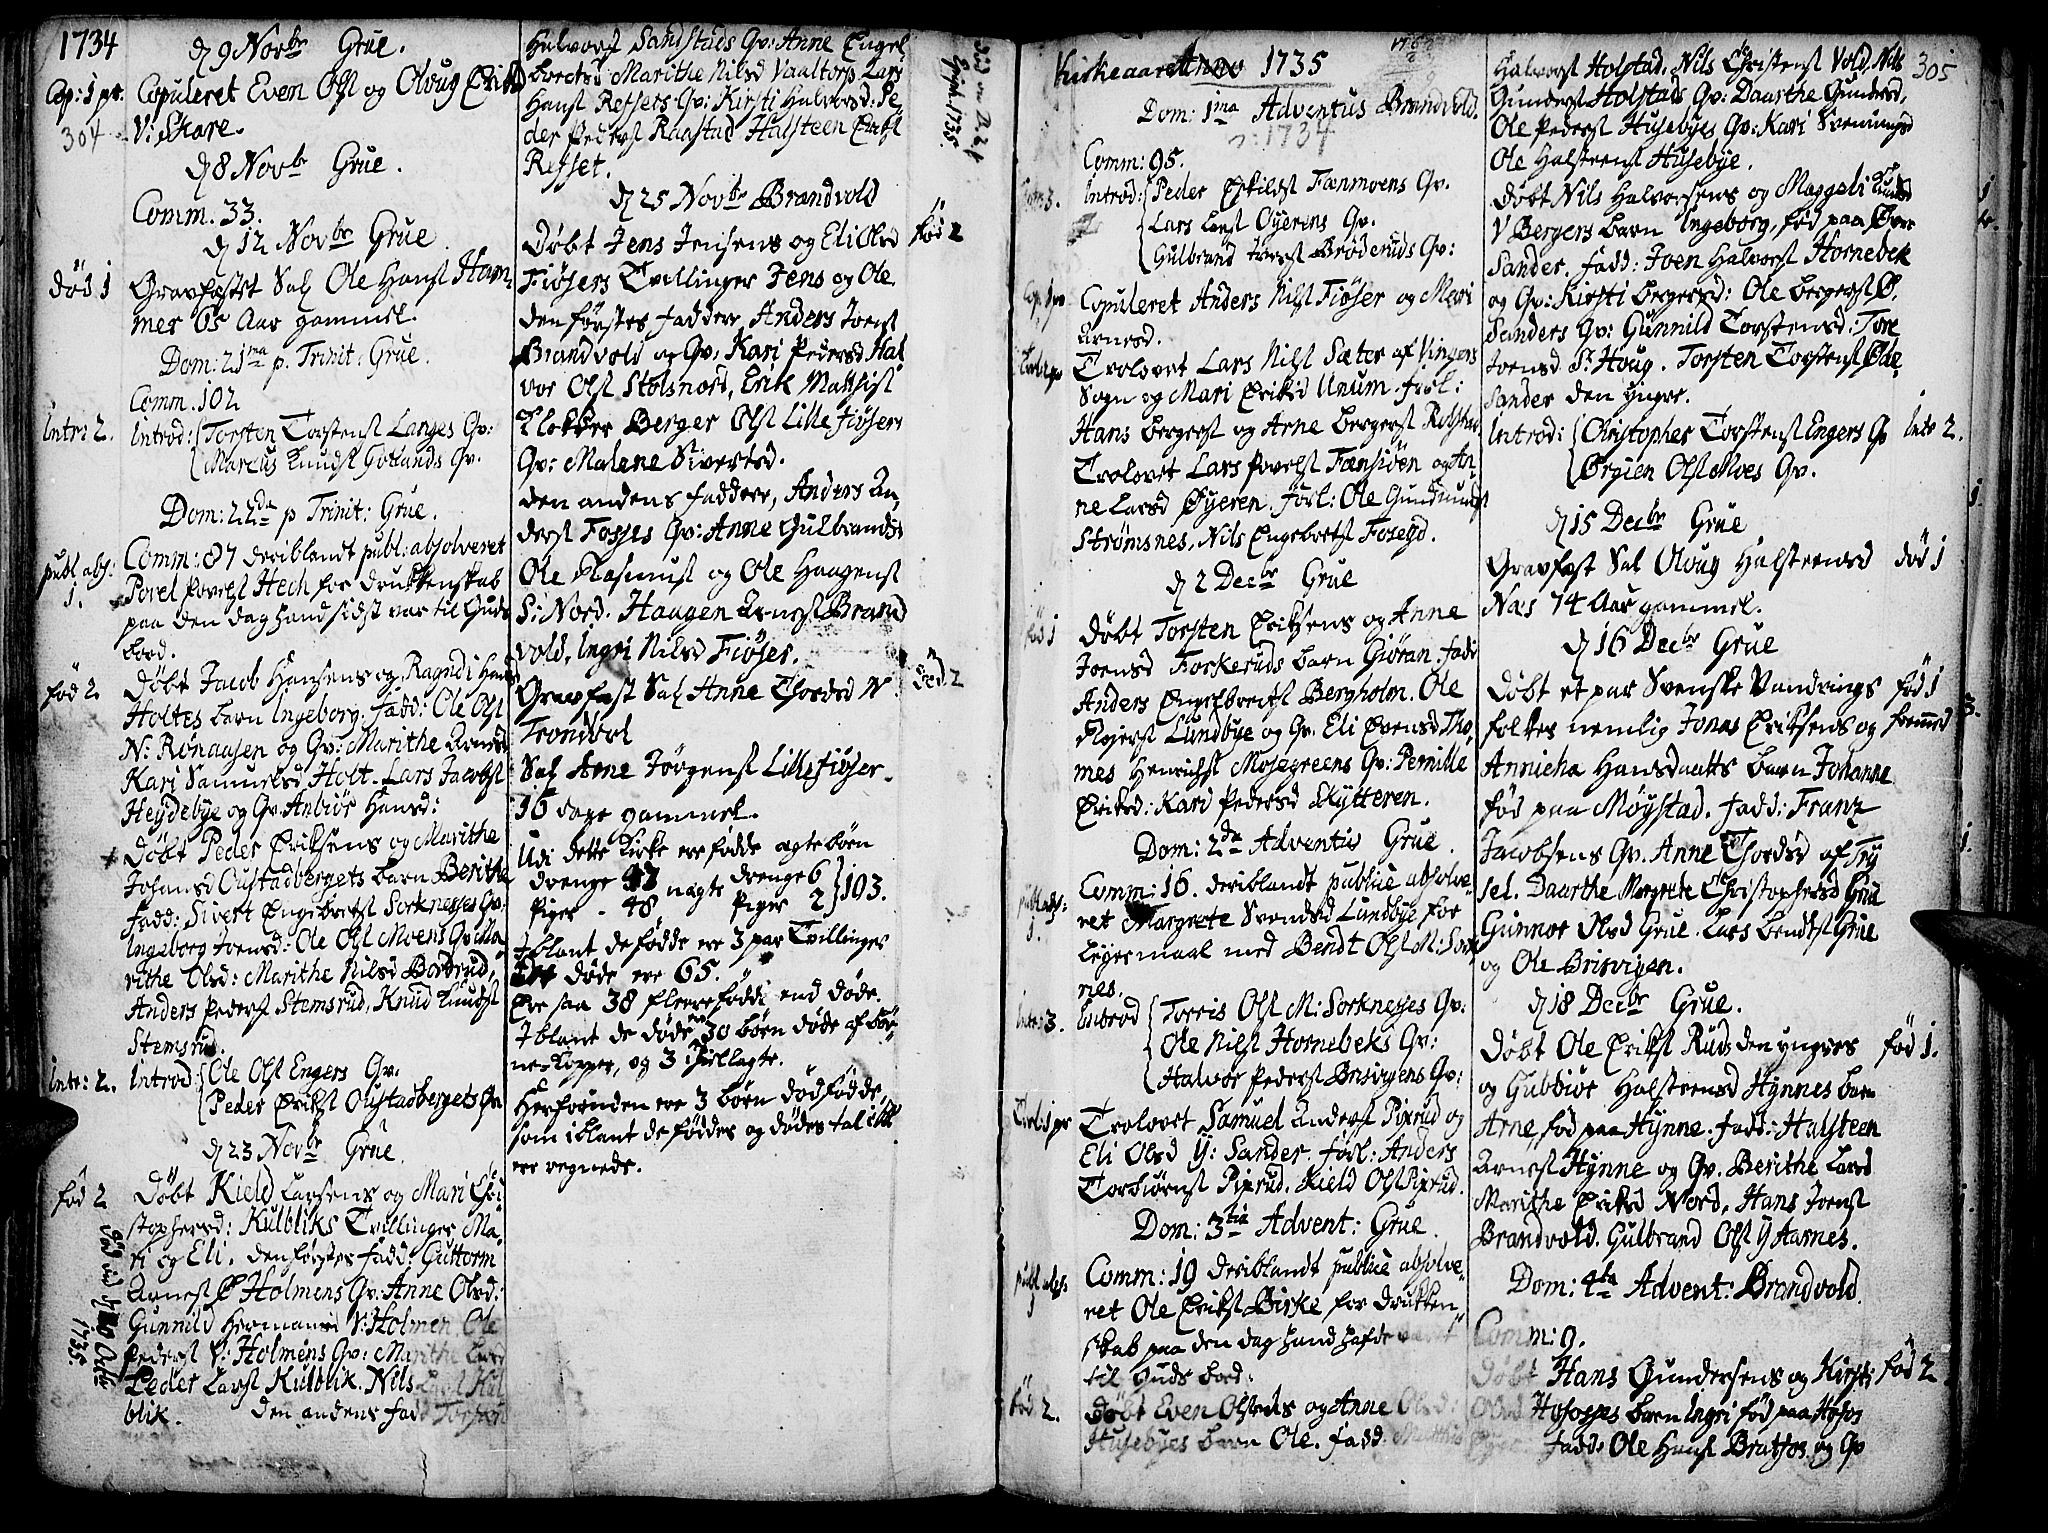 1734
304
d 9 Novbr Grue.
Cop: 1 pr. Copuleret Even Olss og Oloug Eriksd
V: Skare.
d 8 Novbr Grue.
Comm. 33.
d 12 Novbr Grue
død 1 Gravfæstet Sal Ole Hanss Ham
mer 65 Aar gammel.
Dom: 21ma p. Trinit: Grue.
Comm. 102
Intr: 2. Introd: Torsten Torstenss Langes Qv:
Marcus Knudss Gotlands Qv.
Dom: 22da p Trinit: Grue.
publ abs: 1. Comm: 87 deriblandt publ: absolveret
Povel Povelss Hech for drukkenskab
paa den dag hand sidst var til Guds
bord.
fød 2 Døbt Jacob Hansens og Ragndi Hansd
Holtes barn Ingeborg. fadd: Ole Olss
N: Rønaasen og Qv: Marithe Arnesd
Kari Samuelsd Holt. Lars Jacobss
Heydebye og Qv. Anbiør Hansd:
Døbt Peder Eriksens og Marithe
Johansd Oustadbergets barn Berithe
fadd: Sivert Engebretss Sorknesses Qv:
Ingeborg Joensd: Ole Olss Moens Qv: Ma
rithe Olsd: Marithe Nilsd Bostrud,
Anders Pederss Stemsrud, Knud Knudss
Stemsrud.
Intr: 2. Introd: Ole Olss Engers Qv.
Peder Erikss Oustadbergets Qv
d 23 Novbr Grue.
fød 2 Døbt Kield Larsens og Mari Chri
stophersd: Kulbliks Tvillinger Ma
ri og Eli. den førstes fadd: Guttorm
Arness Ø Holmens Qv: Anne Olsd:
Gunnild Hermansd V: Holmen. Ole
Pederss V: Holmens Qv: Marithe Larsd
Peder Larss Kulblik. Nils Larss Kul
blik. den andens fadd Torsten
1735.
Halvorss Sandstads Qv: Anne Engel
bretsd Marithe Nilsd Vaaltorp Lars
Hanss Ressets Qv: Kirsti Halvorsd. Pe
der Pederss Ranstad Halsteen Erikss
Resset.
d 25 Novbr Brandvold
Døbt Jens Jensens og Eli Olsd fød 2
Fiøsers Tvillinger Jens og Ole
den førstes faddere Anders Joenss
Brandvold og Qv. Kari Pedersd Hal
vor Olss Stolsnord, Erik Matthiss
Klokker Berger Olss Lille Fiøsers
Qv: Malene Sivertsd.
den andens faddere, Anders An
derss Fosses Qv: Anne Gulbrandsd
Ole Rasmuss og Ole Haagenss
S: Nord. Haagen Arness Brand
vold, Ingri Nilsd Fiøser.
Gravfæst Sal Anne Tordsd N død 2
Trondvol
Sal Arne Jørgenss Lille fiøser
16 dage gammel.
Udi dette Kirke ere fødde ægte børn
drenge 47 uægte drenge 6
Piger - 48 Piger 2 } 103.
Iblant de fødde ere 3 par Tvillinger
døde ere 65.
Ere saa 38 fleereføddi end døde.
Iblant de døde ere 30 børn døde af bør
ne-Kopper, og 3 ihiellagte.
Herforuden ere 3 børn dødfødde,
som iblant de føddes og dødes tal ikke
ere regnede.
1735.
Kirkeaaret Anno 1735
305
Dom: 1ma Adventus Brandvold.
: 1734
Comm: 95.
Intr: 3. Introd: Peder Eskildss Fænmoens Qv.
Lars Larss Øyerens Qv.
Gulbrand Iverss Brøderuds Qv:
Cop. 1 pr Copuleret Anders Nilss Fiøser og Mari
Arnesd.
Trol: 2 pr Trolovet Lars Nilss Sæter af Vingers
Sogn og Mari Eriksd Unum. forl:
Hans Bergerss og Arne Bergerss Rolstad.
Trolovet Lars Povelss Fænsiøen og An
ne Larsd Øyeren. forl: Ole Gundmundss
Strømsnes, Nils Engebretss Fosegd.
d 2 Decbr Grue
fød 1 Døbt Torsten Eriksens og Anne
Joensd Foskeruds barn Giøran. fadd
Anders Engelbretss Bergholm. Ole
Rojerss Lundbye og Qv. Eli Evensd Tho
mes Henrichss Mosegreens Qv: Pernille
Eriksd: Kari Pedersd Skytteren.
Dom: 2da Adventus Grue.
publ abs: 1. Comm: 16. deriblandt publice absolve
ret Margrete Svendsd Lundbye for
Leyermaal med Bendt Olss M: Sork
nes.
Intr: 3. Introd Torris Olss M: Sorknesses Qv:
Ole Nilss Hornebeks Qv:
Halvor Pederss Brisvigens Qv:
Trol: 1 pr Trolovet Samuel Anderss Pixrud og
Eli Olsd Y: Sander. forl: Anders
Torbiørnss Pixrud. Kield Olss Pixrud.
Dom: 3tia Advent: Grue.
publ abs: 1 Comm: 19 deriblandt publice absolve
ret Ole Erikss Birke for drukken
skab paa den dag hand hafde været
til Guds bord.
fød 2. Døbt Even Olsens og Anne Olsd:
Husebyes barn Ole. fadd: Matthis
Halvorss Holstad. Nils Christenss Vold, Nils
Gunderss Holstads Qv: Daarthe Gundersd,
Ole Pederss Husebyes Qv: Kari Svenningsd
Ole Halsteenss Husebye.
Døbt Nils Halvorsens og Maggeli
V Bergers barn Ingeborg, fød paa Øver
Sander. fadd: Joen Halvorss Hornebek
og Qv: Kirsti Bergersd: Ole Bergerss Ø.
Sanders Qv: Gunnild Torstensd. Tore
Joensd S: Houg. Torsten Torstenss Øde
Sander den yngre.
Introd: Christopher Torstenss Engers Qv Intr 2.
Ørgien Olss Noes Qv.
d 15 Decbr Grue
Gravfæst Sal Oloug Halsteensd død 1
Næs 74 Aar gammel.
d 16 Decbr Grue
Døbt et par Svenske Vandrings fød 1
folkes nemlig Jonas Eriksens og fremmed
Annicha Hansdaatts barn Johanne
fød paa Møystad. fadd: Franz
Jacobsens Qv. Anne Tordsd af Try
sel. Daarthe Margrete Christophersd Grue
Gunnor Olsd Grue. Lars Bendtss Grue
og Ole Brisvigen.
d 18 Decbr Grue.
Døbt Ole Erikss Ruds den yngres fød 1.
og Gubbiør Halsteensd Hynnes barn
Arne, fød paa Hynne. fadd: Halsteen
Arness Hynne og Qv. Berithe Larsd
Marithe Eriksd Nord, Hans Joenss
Brandvold. Gulbrand Olss Y Aarnes.
Dom: 4ta Advent: Brandvold
Comm: 9.
Døbt Hans Gundersens og Kirsti fød 2
Olsd Hofosses barn Ingri fød paa Hofos
fadd: Ole Hanss Bratfos og Qv